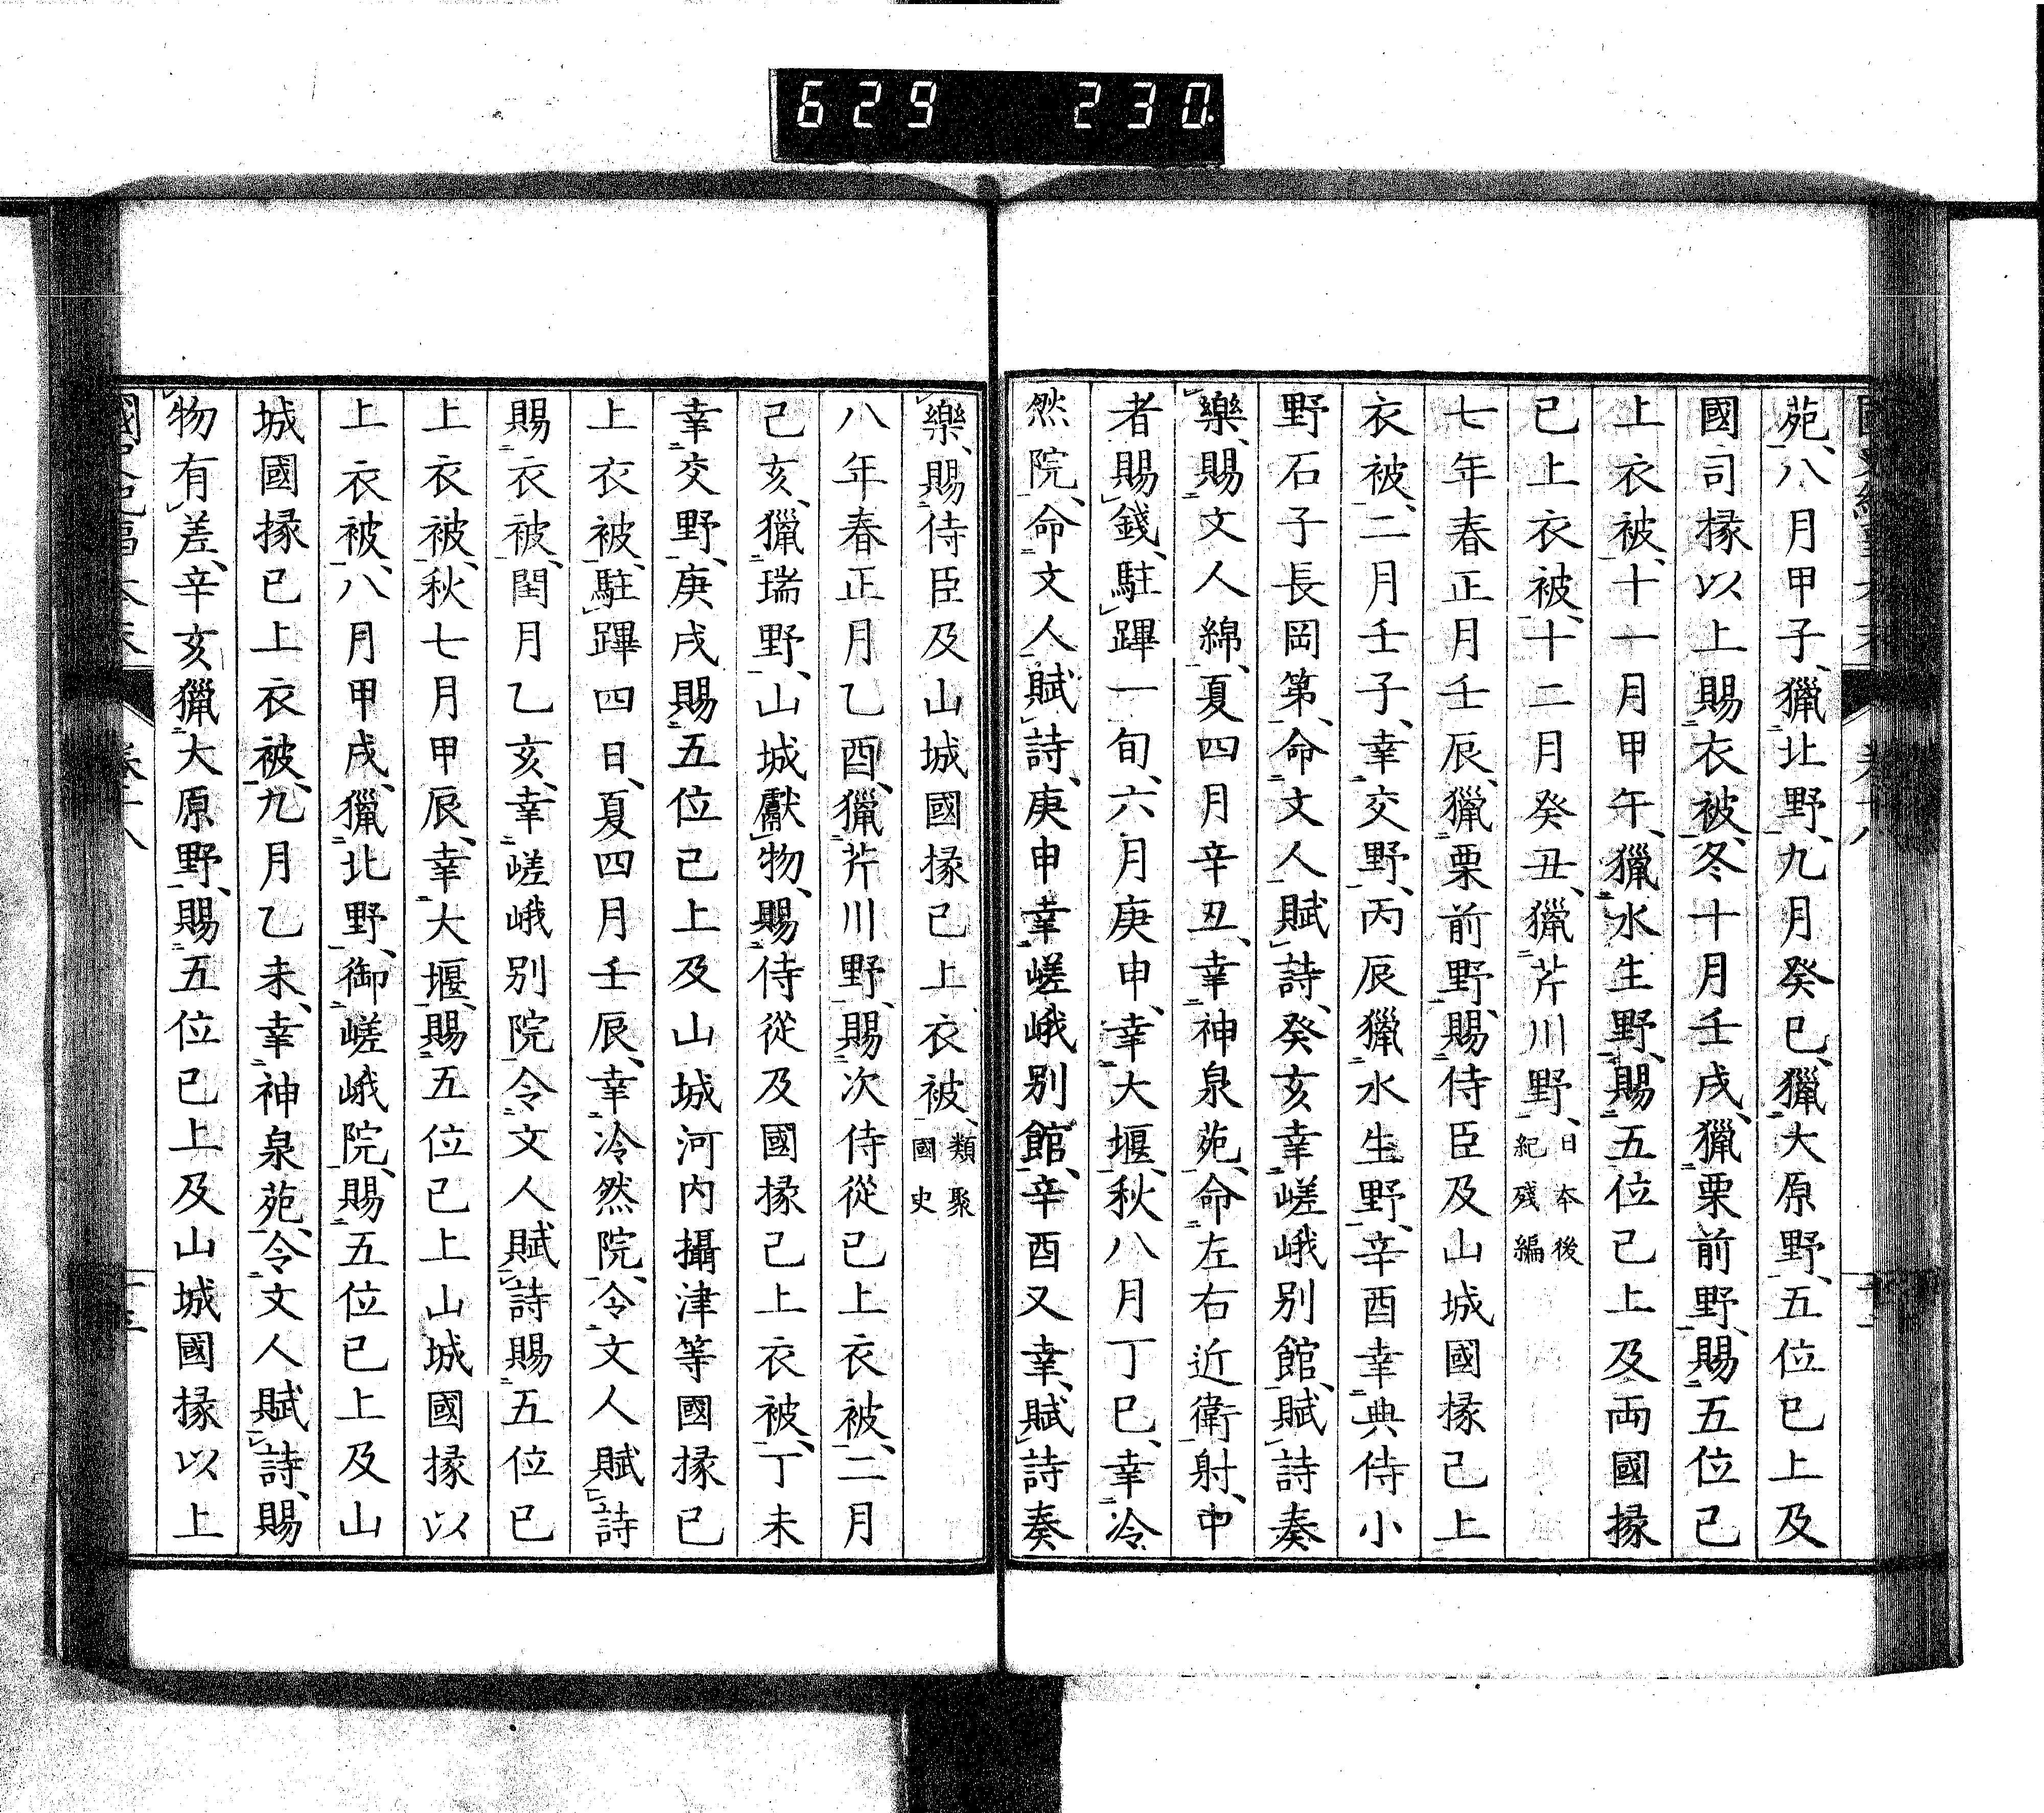 629 230
苑、八月甲子、獵北野、九月癸巳、獵大原野、五位已上及
國司掾以上賜衣被、冬十月壬戌、獵栗前野、賜五位已
上衣被、十一月甲午、獵水生野、賜五位已上及両國掾
已上衣被、十二月癸丑、獵芹川野、日本後紀殘編
七年春正月壬辰、獵栗前野、賜侍臣及山城國掾已上
衣被、二月壬子、幸交野、丙辰獵水生野、辛酉幸典侍小
野石子長岡第、命文人賦詩、癸亥幸嵯峨別館、賦詩奏
樂、賜文人綿、夏四月辛丑、幸神泉苑、命左右近衛射、中
者賜錢、駐蹕一旬、六月庚申、幸大堰、秋八月丁巳、幸冷
然院、命文人賦詩、庚申幸嵯峨別館、辛酉又幸、賦詩奏
樂、賜侍臣及山城國掾已上衣被、類聚國史
八年春正月乙酉、獵芹川野、賜次侍從已上衣被、二月
己亥、獵瑞野、山城獻物、賜侍從及國掾已上衣被、丁未
幸交野、庚戌賜五位已上及山城河内攝津等國掾已
上衣被、駐蹕四日、夏四月壬辰、幸冷然院、令文人賦詩
賜衣被、閏月乙亥、幸嵯峨別院、令文人賦詩賜五位已
上衣被、秋七月甲辰、幸大堰、賜五位已上山城國掾以
上衣被、八月甲戌、獵北野、御嵯峨院、賜五位已上及山
城國掾已上衣被、九月乙未、幸神泉苑、令文人賦詩、賜
物有差、辛亥獵大原野、賜五位已上及山城國掾以上